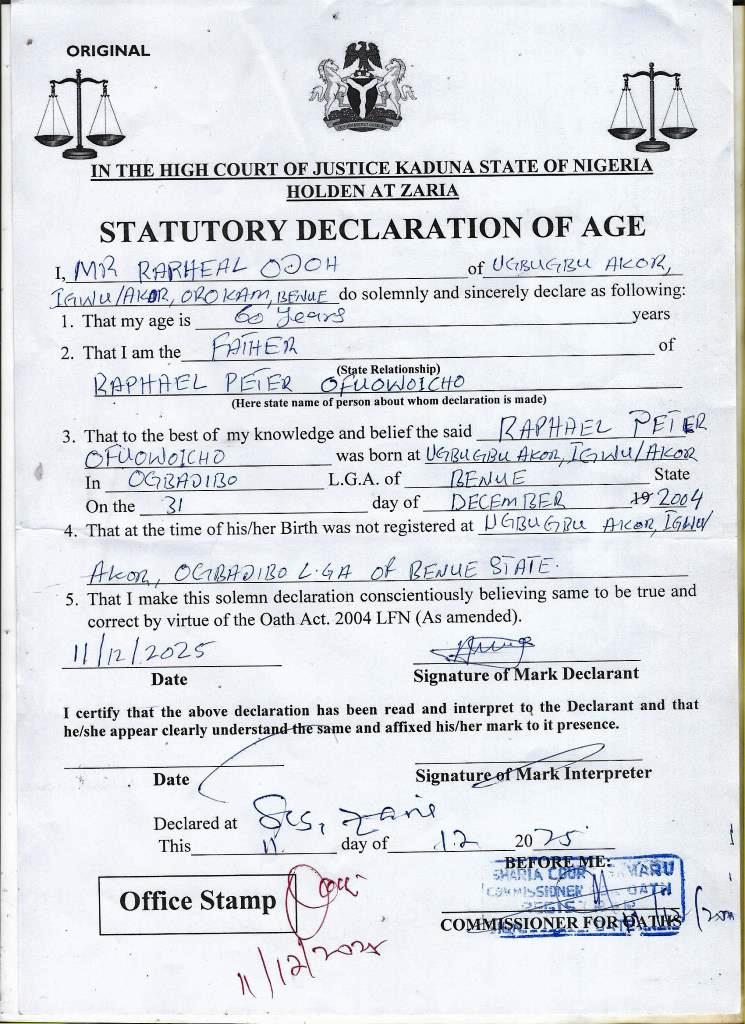 ORIGINAL
IN THE HIGH COURT OF JUSTICE KADUNA STATE OF NIGERIA
HOLDEN AT ZARIA
STATUTORY DECLARATION OF AGE
I, MR RAPHEAL OJOH of UGBUGBU AKOR,
IGWU/AKOR, OROKAM, BENUE do solemnly and sincerely declare as following:
1. That my age is 60 years years
2. That I am the FATHER of
(State Relationship)
RAPHAEL PETER OFUOWOICHO
(Here state name of person about whom declaration is made)
3. That to the best of my knowledge and belief the said RAPHAEL PETER
OFUOWOICHO was born at UGBUGBU AKOR, IGWU/AKOR
In OGBADIBO L.G.A. of BENUE State
On the 31 day of DECEMBER 19 2004
4. That at the time of his/her Birth was not registered at UGBUGBU AKOR, IGWU/
AKOR, OGBADIBO L.GA OF BENUE STATE.
5. That I make this solemn declaration conscientiously believing same to be true and
correct by virtue of the Oath Act. 2004 LFN (As amended).
11/12/2025
Date Signature of Mark Declarant
I certify that the above declaration has been read and interpret to the Declarant and that
he/she appear clearly understand the same and affixed his/her mark to it presence.
Date Signature of Mark Interpreter
Declared at
This 11 day of 12 2025
BEFORE ME:
SHARIA COUR
COMMISSIONER OATH
Office Stamp
COMMISSIONER FOR OATHS
11/12/2025